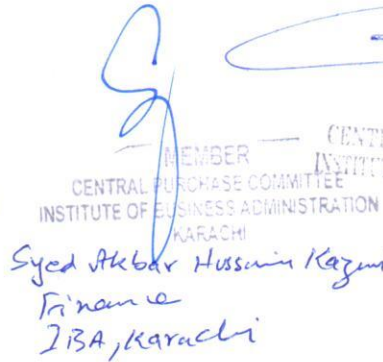 MEMBER
CENTRAL PURCHASE COMMITTEE
INSTITUTE OF BUSINESS ADMINISTRATION
KARACHI
Syed Akbar Hussain
Finance
IBA, Karachi